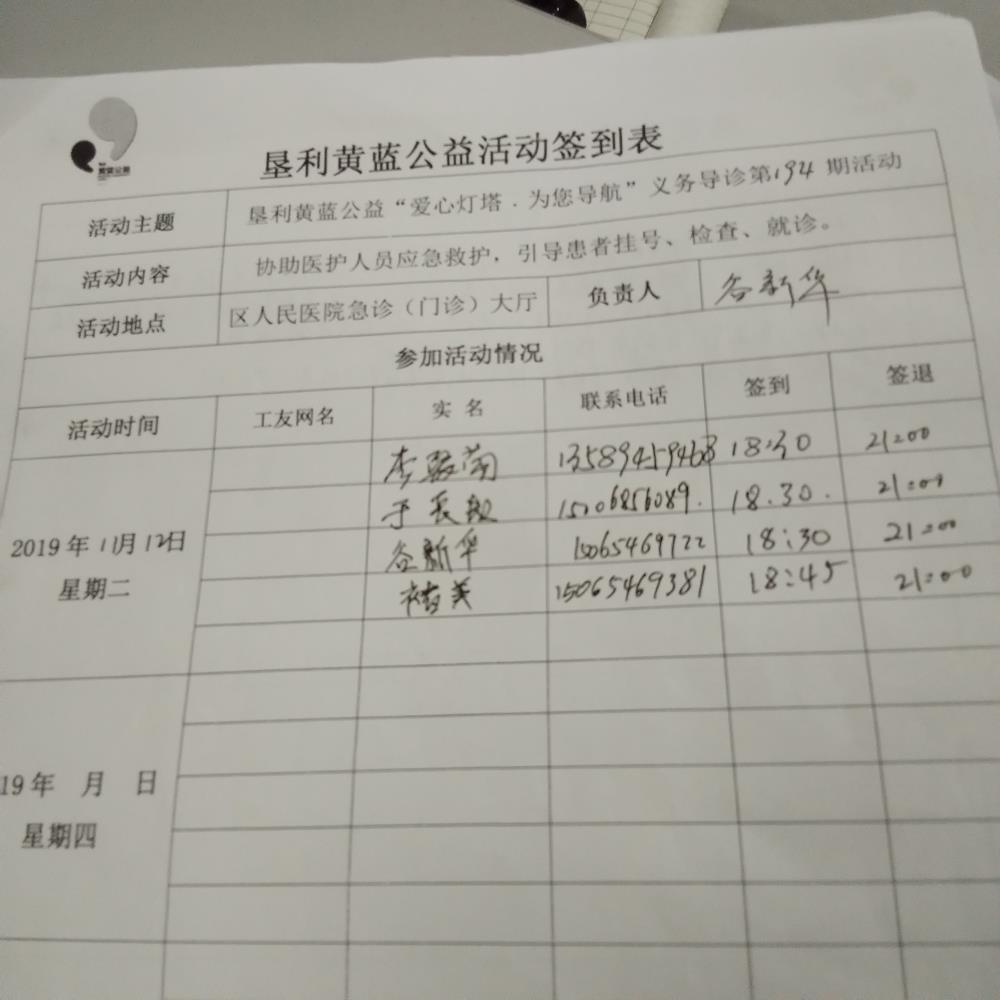 垦利黄蓝公益活动签到表
活动主题 垦利黄蓝公益“爱心灯塔．为您导航”义务导诊第194期活动
活动内容 协助医护人员应急救护，引导患者挂号、检查、就诊。
活动地点 区人民医院急诊（门诊）大厅 负责人 谷新华
参加活动情况
活动时间 工友网名 实名 联系电话 签到 签退
13589459468 18:30 21:00
15206856089. 18.30. 21:00
2019年11月12日 谷新华 15065469722 18:30 21:00
星期二 褚美 15065469381 18:45 21:00
19年 月 日
星期四